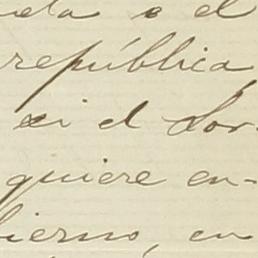 eta o el
república
si el Sor.
quiere en-
bierno, en